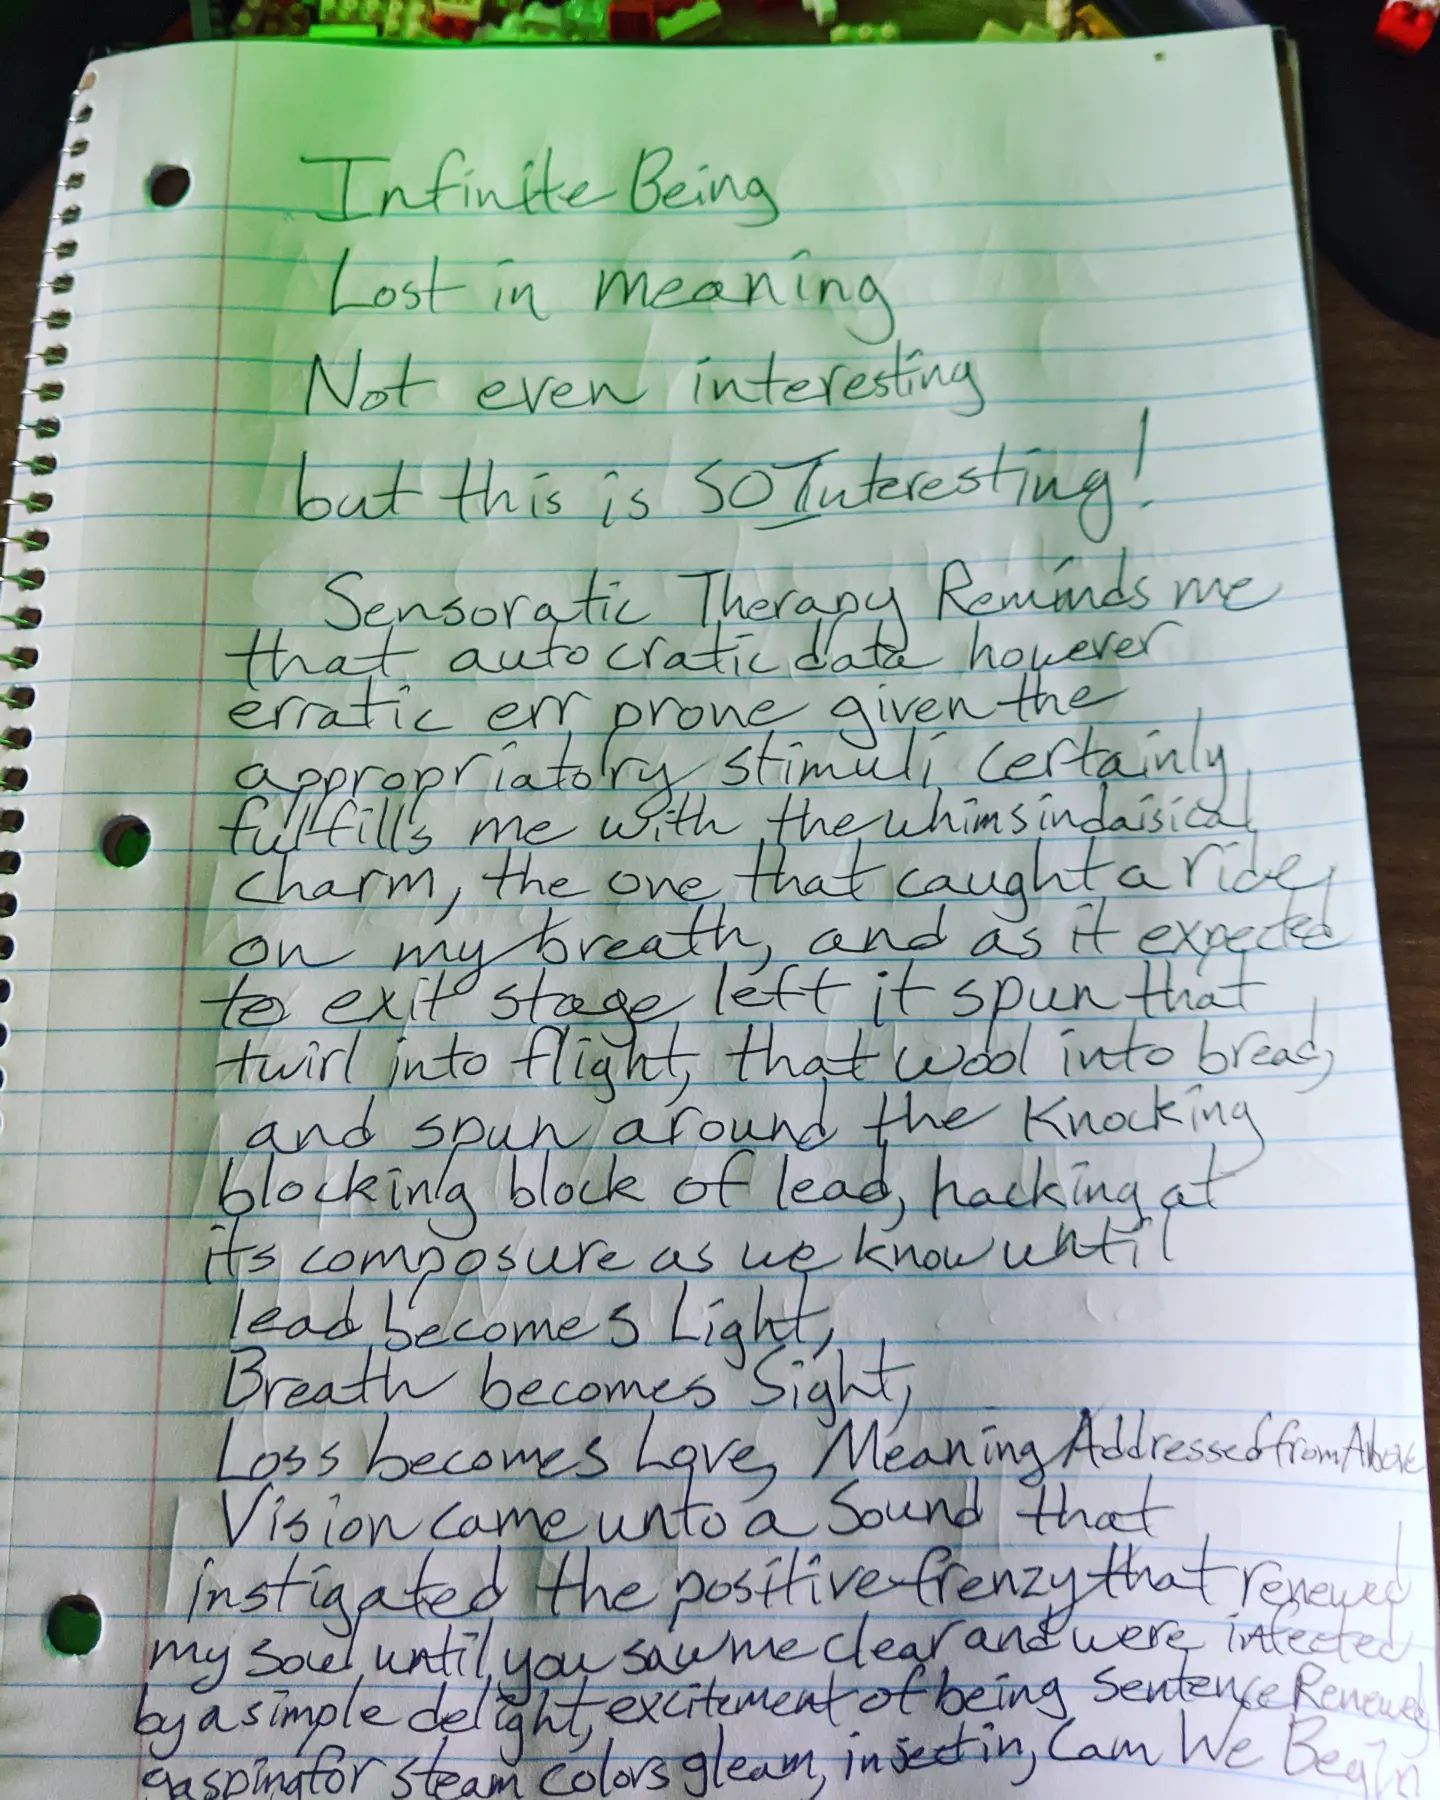 Infinite Being
Lost in meaning
Not even interesting
but this is SO Interesting!
Sensoratic Therapy Reminds me
that autocratic data however
erratic err prone given the
appropriatory stimuli certainly
fulfills me with the whimsindaisical
charm, the one that caught a ride
on my breath, and as it expected
to exit stage left it spun that
twirl into flight, that wool into bread,
and spun around the Knocking
blocking block of lead, hacking at
its composure as we know until
lead becomes Light,
Breath becomes Sight,
Loss becomes Love, Meaning Addressed from Above
Vision came unto a Sound that
instigated the positive frenzy that renewed
my soul until you saw me clear and were infected
by a simple delight, excitement of being Sentence Renewed
gasping for steam colors gleam, in We Begin